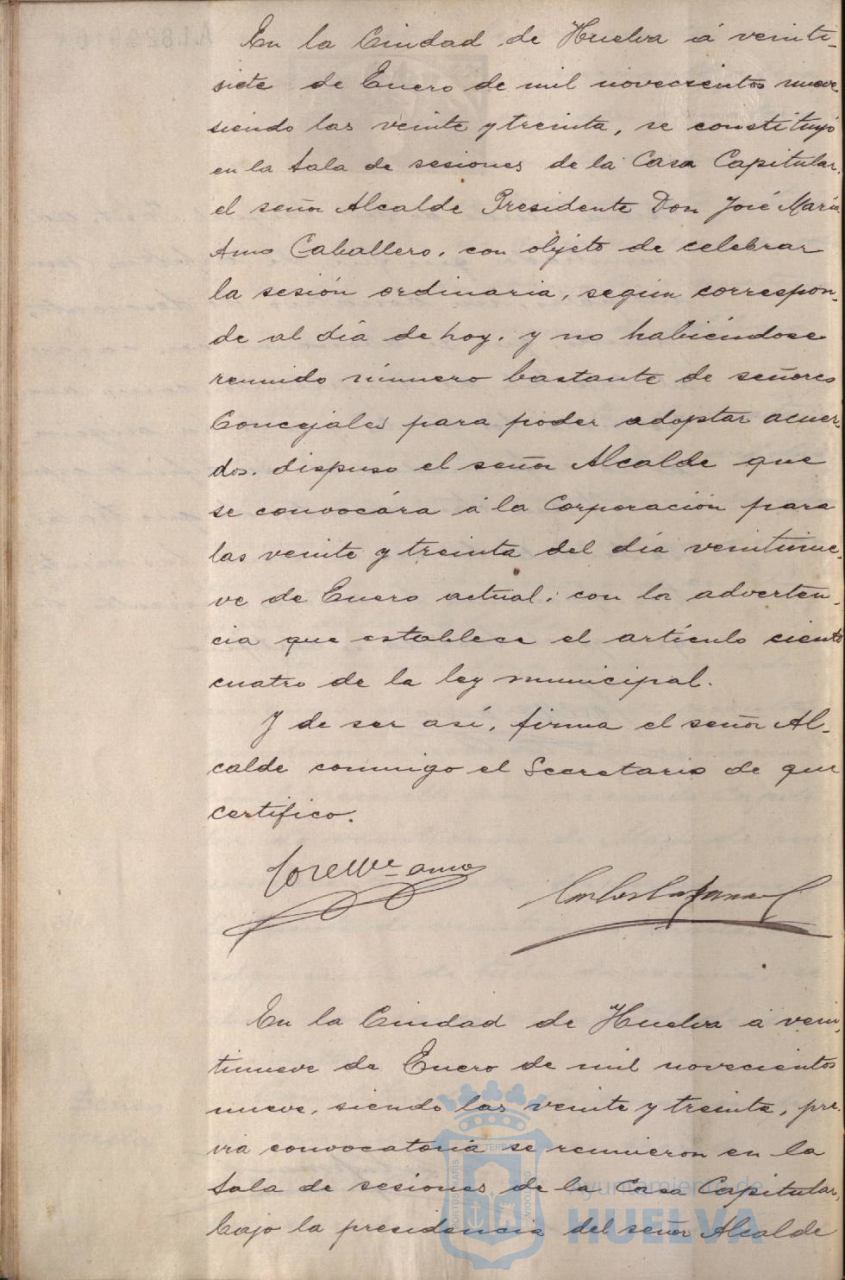 En la Ciudad de Huelva á veinti-
siete de Enero de mil novecientos nueve,
siendo las veinte y treinta, se constituyó
en la Sala de sesiones de la Casa Capitular,
el señor Alcalde Presidente Don José María
Amo Caballero, con objeto de celebrar
la sesión ordinaria, según correspon-
de al día de hoy, y no habiéndose
reunido número bastante de señores
Concejales para poder adoptar acuer-
dos, dispuso el señor Alcalde que
se convocára á la Corporación para
las veinte y treinta del día veintinue-
ve de Enero actual, con la adverten-
cia que establece el artículo ciento
cuatro de la ley municipal.
Y de ser así, firma el señor Al-
calde conmigo el Secretario de que
certifico.
José Mª Amo
En la Ciudad de Huelva á vein-
tinueve de Enero de mil novecientos
nueve, siendo las veinte y treinta, pre-
via convocatoria se reunieron en la
Sala de sesiones de la Casa Capitular,
bajo la presidencia del señor Alcalde
Ayuntamiento de
HUELVA